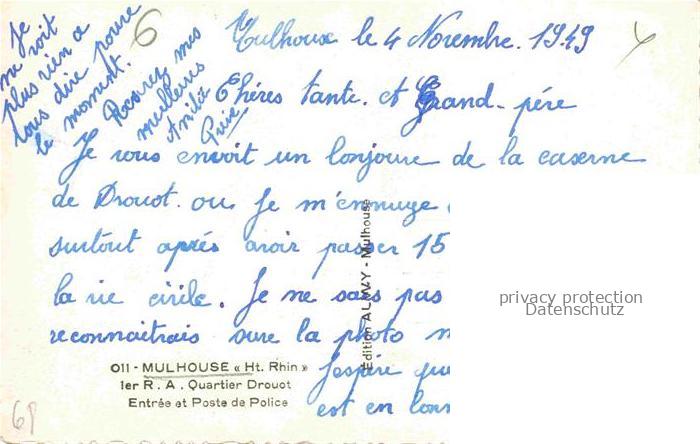 Mulhouse le 4 Novembre. 1949
Chéres tante. et Grand-pére
Je vous envoit un bonjoure de la caserne
de Drouot. ou Je m'ennuye
surtout aprés avoir passer 15
la vie civile. Je ne sais pas
reconnaitrais sure la photo
Jespére que
est en bon
Je
ne voit
plus rien a
vous dire poure
le moment.
Recevez mes
meilleures
Amitié
6
011 - MULHOUSE « Ht. Rhin »
1er R. A. Quartier Drouot
Entrée et Poste de Police
Edition ALWY - Mulhouse
privacy protection
Datenschutz
68